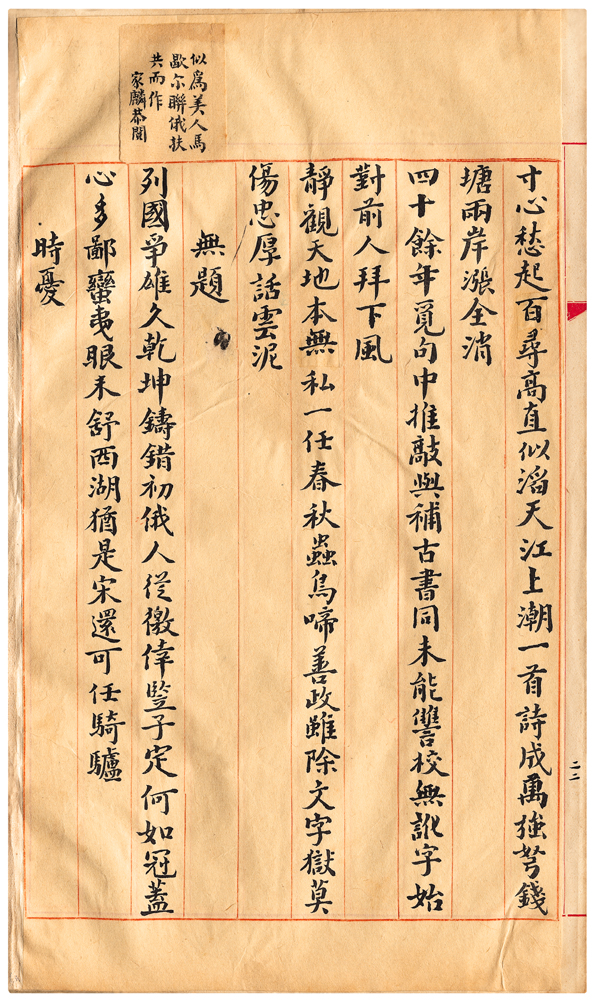 似爲美人馬
歇尔聯俄扶
共而作
家麟恭閱
寸心愁起百尋高直似滔天江上潮一首詩成萬強弩錢
塘兩岸漲全消
四十餘年覓句中推敲與補古書同未能讐校無訛字始
對前人拜下風
靜觀天地本無私一任春秋蟲鳥啼善政雖除文字獄莫
傷忠厚話雲泥
無題
列國爭雄久乾坤鑄錯初俄人從徼倖豎子定何如冠蓋
心多鄙蠻夷眼未舒西湖猶是宋還可任騎驢
時憂
二二